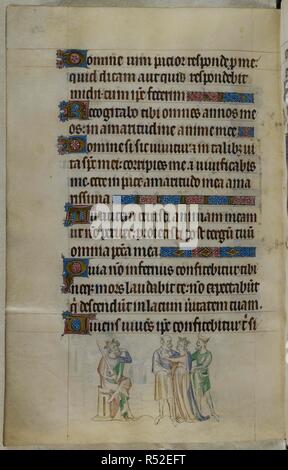 Domine uim patior responde p me:
quid dicam aut quid respondebit
michi: cum ipse fecerim
Recogitabo tibi omnes annos me
os: in amaritudine anime mee
Domine si sic uiuitur: et in talib; ui
ta spc mei: corripies me et uiuificabis
me: ecce in pace amaritudo mea ama
rissima
Tu autem eruisti animam meam
ut non periret: proiecisti post tergū tuū
omnia pccā mea
Quia nō infernus confitebitur tibi
neq; mors laudabit te: nō expectabūt
qui descendūt in lacum ueritatem tuam
Viuens uiuēs ipse confitebitur t' si
alamy
Image ID: R52EFT
www.alamy.com